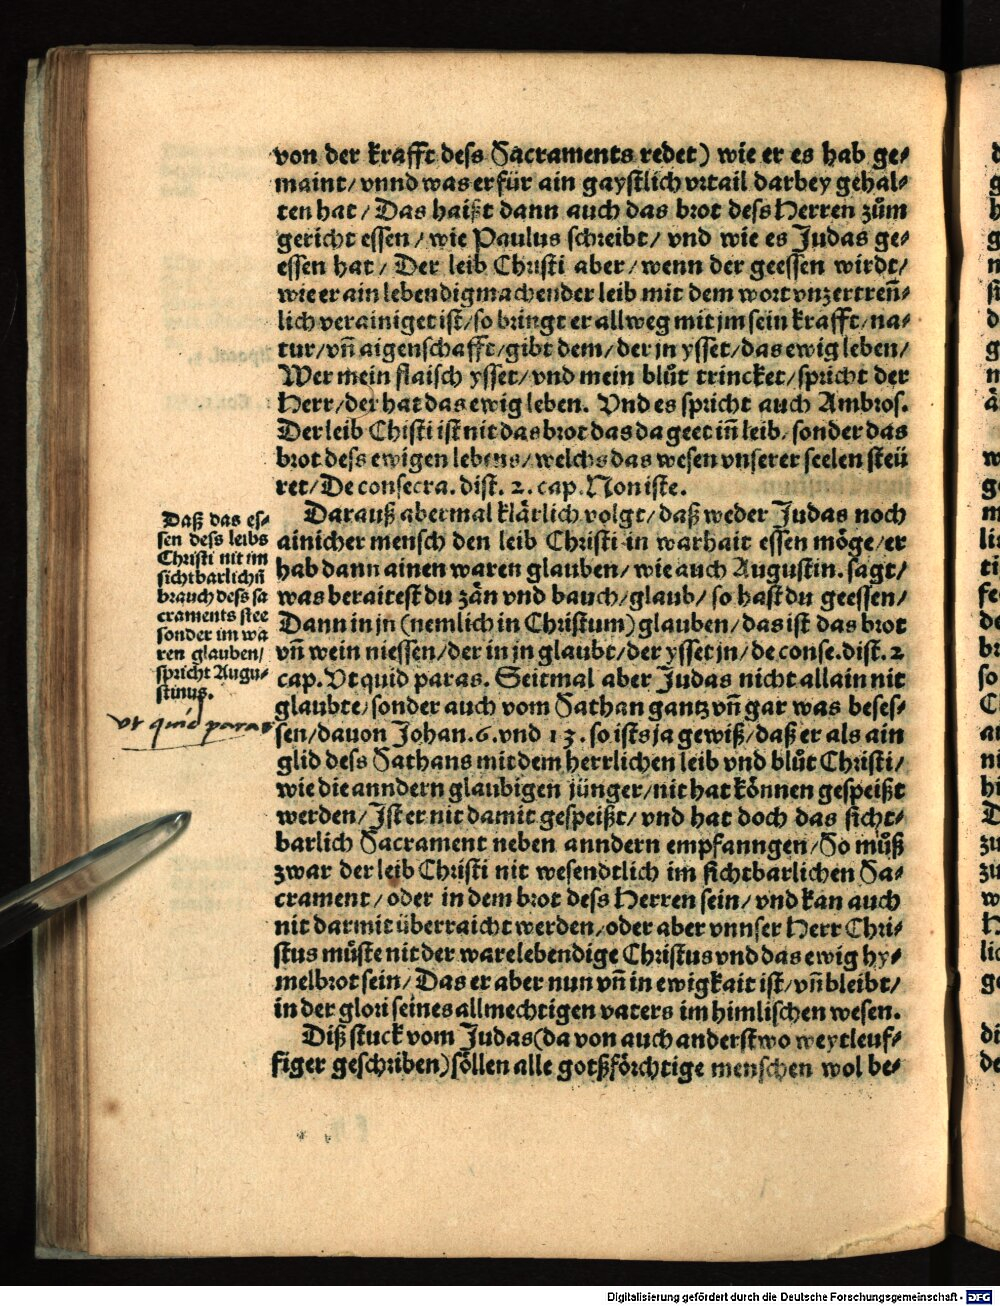 von der krafft dess Sacraments redet) wie er es hab ge⸗
maint/ vnnd was er für ain gaystlich vrtail darbey gehal⸗
ten hat/ Das haißt dann auch das brot dess Herren zům
gericht essen/ wie Paulus schreibt/ vnd wie es Judas ge⸗
essen hat/ Der leib Christi aber/ wenn der geessen wirdt/
wie er ain lebendigmachender leib mit dem wort vnzertreñ⸗
lich verainiget ist/ so bringt er allweg mit jm sein krafft/ na⸗
tur/ vñ aigenschafft/ gibt dem/ der jn ysset/ das ewig leben/
Wer mein flaisch ysset/ vnd mein blůt trincket/ spricht der
Herr/ der hat das ewig leben. Vnd es spricht auch Ambros.
Der leib Chisti ist nit das brot das da geet iñ leib, sonder das
brot dess ewigen lebens/ welchs das wesen vnserer seelen steü
ret/ De consecra. dist. 2. cap. Non iste.
Darauß abermal klärlich volgt/ daß weder Judas noch
ainicher mensch den leib Christi in warhait essen möge/ er
hab dann ainen waren glauben/ wie auch Augustin. sagt/
was beraitest du zän vnd bauch/ glaub/ so hast du geessen/
Dann in jn (nemlich in Christum) glauben/ das ist das brot
vñ wein niessen/ der in jn glaubt/ der ysset jn/ de conse. dist. 2
cap. Vt quid paras. Seitmal aber Judas nicht allain nit
glaubte/ sonder auch vom Sathan gantz vñ gar was beses⸗
sen/ dauon Johan. 6. vnd 13. so ists ja gewiß/ daß er als ain
glid dess Sathans mit dem herrlichen leib vnd blůt Christi/
wie die anndern glaubigen jünger/ nit hat können gespeißt
werden/ Ist er nit damit gespeißt/ vnd hat doch das sicht⸗
barlich Sacrament neben anndern empfanngen/ So můß
zwar der leib Christi nit wesendtlich im sichtbarlichen Sa⸗
crament/ oder in dem brot dess Herren sein/ vnd kan auch
nit darmit überraicht werden/ oder aber vnnser Herr Chri⸗
stus můste nit der ware lebendige Christus vnd das ewig hy⸗
melbrot sein/ Das er aber nun vñ in ewigkait ist/ vñ bleibt/
in der glori seines allmechtigen vaters im himlischen wesen.
Diß stuck vom Judas (da von auch anderstwo weytleuf⸗
figer geschriben) söllen alle gotßförchtige menschen wol be⸗
Daß das es⸗
sen dess leibs
Christi nit im
sichtbarlichñ
brauch dess sa
craments stee
sonder im wa
ren glauben/
spricht Augu⸗
stinus.
vt quid paras
Digitalisierung gefördert durch die Deutsche Forschungsgemeinschaft - DFG